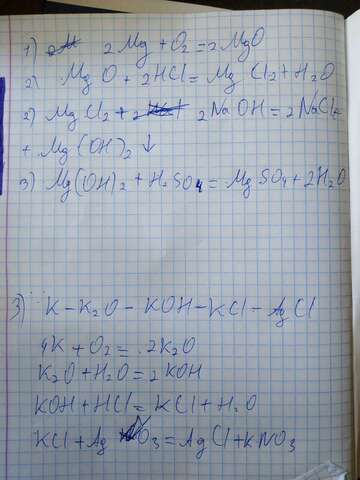 1) 2Mg + O₂ = 2MgO
2) MgO + 2HCl = MgCl₂ + H₂O
2) MgCl₂ + 2NaOH = 2NaCl
+ Mg(OH)₂ ↓
3) Mg(OH)₂ + H₂SO₄ = MgSO₄ + 2H₂O
3) K – K₂O – KOH – KCl – AgCl
4K + O₂ = 2K₂O
K₂O + H₂O = 2KOH
KOH + HCl = KCl + H₂O
KCl + AgNO₃ = AgCl + KNO₃